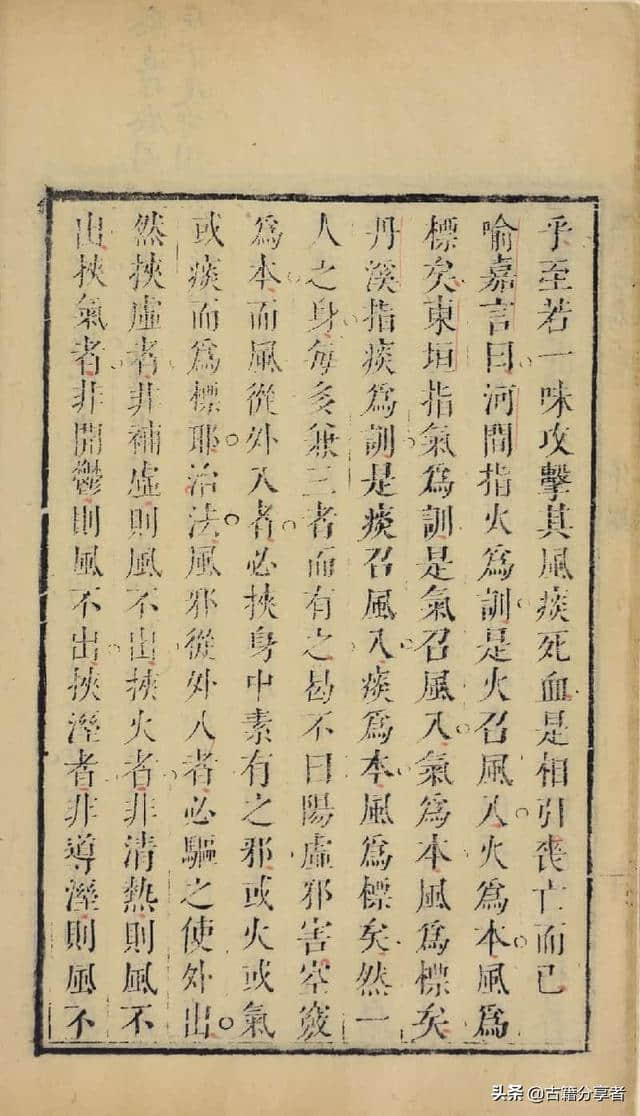 乎至若一味攻擊其風痰死血是相引喪亡而已
喻嘉言曰河間指火爲訓是火召風入火爲本風爲
標矣東垣指氣爲訓是氣召風入氣爲本風爲標矣
丹溪指痰爲訓是痰召風入痰爲本風爲標矣然一
人之身每多兼三者而有之曷不曰陽虛邪害空竅
爲本而風從外入者必挾身中素有之邪或火或氣
或痰而爲標耶治法風邪從外入者必驅之使外出
然挾虛者非補虛則風不出挾火者非清熱則風不
出挾氣者非開鬱則風不出挾溼者非導溼則風不
头条 @古籍分享者